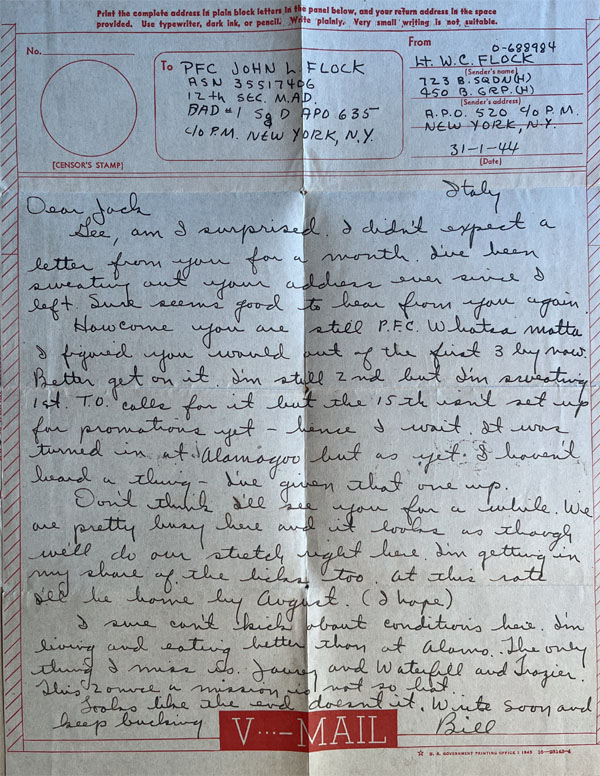 Print the complete address in plain block letters in the panel below, and your return address in the space
provided. Use typewriter, dark ink, or pencil. Write plainly. Very small writing is not suitable.
No.
[CENSOR'S STAMP]
To PFC JOHN L. FLOCK
ASN 35517406
12th SEC. M.A.D.
BAD #1 Sq D APO 635
c/o P.M. NEW YORK, N.Y.
From
O-688984
Lt. W.C. FLOCK
(Sender's name)
723 B. SQDN (H)
450 B. GRP. (H)
(Sender's address)
A.P.O. 520 c/o P.M.
NEW YORK, N.Y.
31-1-44
(Date)
Italy
Dear Jack
Gee, am I surprised. I didn't expect a
letter from you for a month. I've been
sweating out your address ever since I
left. Sure seems good to hear from you again.
Howcome you are still P.F.C. Whatsa matta
I figured you would out of the first 3 by now.
Better get on it. I'm still 2nd but I'm sweating
1st. T.O. calls for it but the 15th isn't set up
for promotions yet – hence I wait. It was
turned in at Alamagoo but as yet I haven't
heard a thing – I've given that one up.
Don't think I'll see you for a while. We
are pretty busy here and it looks as though
we'll do our stretch right here. I'm getting in
my share of the licks too. At this rate
I'll be home by August. (I hope)
I sure can't kick about conditions here. I'm
living and eating better than at Alamo. The only
thing I miss is. and Waterfill and Frazier.
This 2 ounce a mission is not so hot.
Looks like the end doesn't it. Write soon and
keep bucking
Bill
V···–MAIL
☆ U. S. GOVERNMENT PRINTING OFFICE : 1943 16—28143-4